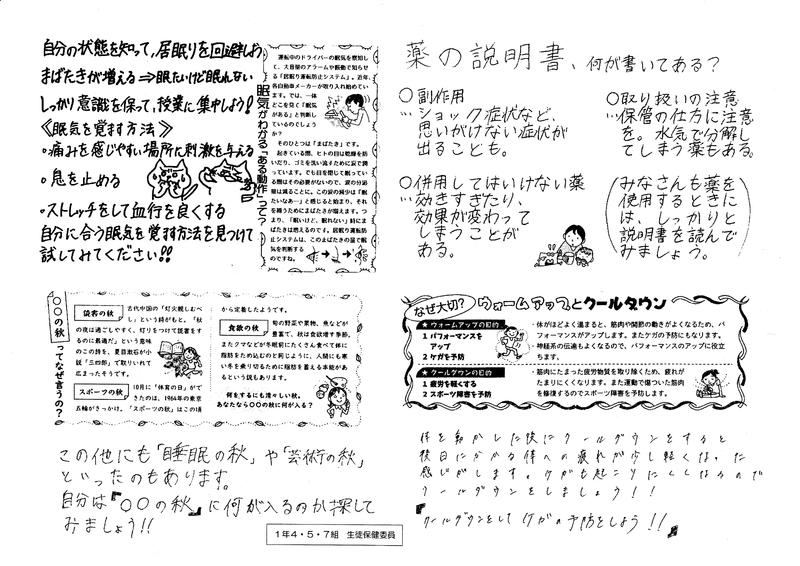 自分の状態を知って、居眠りを回避しよう
まばたきが増える⇒眠たいけど眠れない
しっかり意識を保って、授業に集中しよう!
《眠気を覚ます方法》
・痛みを感じやすい場所に刺激を与える
・息を止める
・ストレッチをして血行を良くする
自分に合う眠気を覚ます方法を見つけて
試してみてください!!
眠気がわかる"ある動作"って?
運転中のドライバーの眠気を察知し
て、大音量のアラームや振動で知らせ
る「居眠り運転防止システム」。近年、
各自動車メーカーが取り入れ始めてい
ます。では、一体
どこを見て「眠気
がある」と判断し
ているのでしょう
か?
そのひとつは「まばたき」です。
起きている間、ヒトの目は乾燥を防
いだり、ゴミを洗い流すために涙で潤
っています。でも目を閉じて眠ってい
る間はその必要がないので、涙の分泌
量は減ることに。この涙の減少は「眠
たいなあ…」と感じると始まり、それ
を補うためにまばたきが増えます。つ
まり、「眠いけど、眠れない」時にま
ばたきは増えるのです。居眠り運転防
止システムは、このまばたきの量で眠
気を判断する
のですね。
薬の説明書、何が書いてある?
○副作用
…ショック症状など、
思いがけない症状が
出ることも。
○併用してはいけない薬
…効きすぎたり、
効果が変わって
しまうことが
ある。
○取り扱いの注意
…保管の仕方に注意
を。水気で分解し
てしまう薬もある。
(みなさんも薬を
使用するときに
は、しっかりと
説明書を読んで
みましょう。)
○○の秋ってなぜ言うの?
読書の秋
古代中国の「灯火親しむべ
し」という詩がもと。「秋
の夜は過ごしやすく、灯りをつけて読書をす
るのに最適だ」という意味
のこの詩を、夏目漱石が小
説「三四郎」で取りいれて
広まったそうです。
スポーツの秋
10月に「体育の日」がで
きたのは、1964年の東京
五輪がきっかけ。「スポーツの秋」はこの頃
から定着したようです。
食欲の秋
旬の野菜や果物、魚などが
豊富で、秋は食欲増す季節。
またクマなどが冬眠前にたくさん食べて体に
脂肪をため込むのと同じように、人間にも寒
い冬を乗り切るために脂肪を蓄える本能があ
るという説もあります。
何をするにも清々しい秋。
あなたなら○○の秋に何が入る?
この他にも「睡眠の秋」や「芸術の秋」
といったのもあります。
自分は『○○の秋』に何が入るのか探して
みましょう!!
なぜ大切? ウォームアップとクールダウン
★ウォームアップの目的
1 パフォーマンスを
アップ
2 ケガを予防
・体がほどよく温まると、筋肉や関節の動きがよくなるため、パ
フォーマンスがアップします。またケガの予防にもなります。
・神経系の伝達もよくなるので、パフォーマンスのアップに役立
ちます。
★クールダウンの目的
1 疲労を軽くする
2 スポーツ障害を予防
・筋肉にたまった疲労物質を取り除くため、疲れが
たまりにくくなります。また運動で傷ついた筋肉
を修復するのでスポーツ障害を予防します。
体を動かした後にクールダウンをすると
後日にかかる体への疲れが少し軽くなった
感じがします。ケガも起こりにくくなるので
クールダウンをしましょう!!
『クールダウンをして ケガの予防をしよう!!』
1年4・5・7組 生徒保健委員